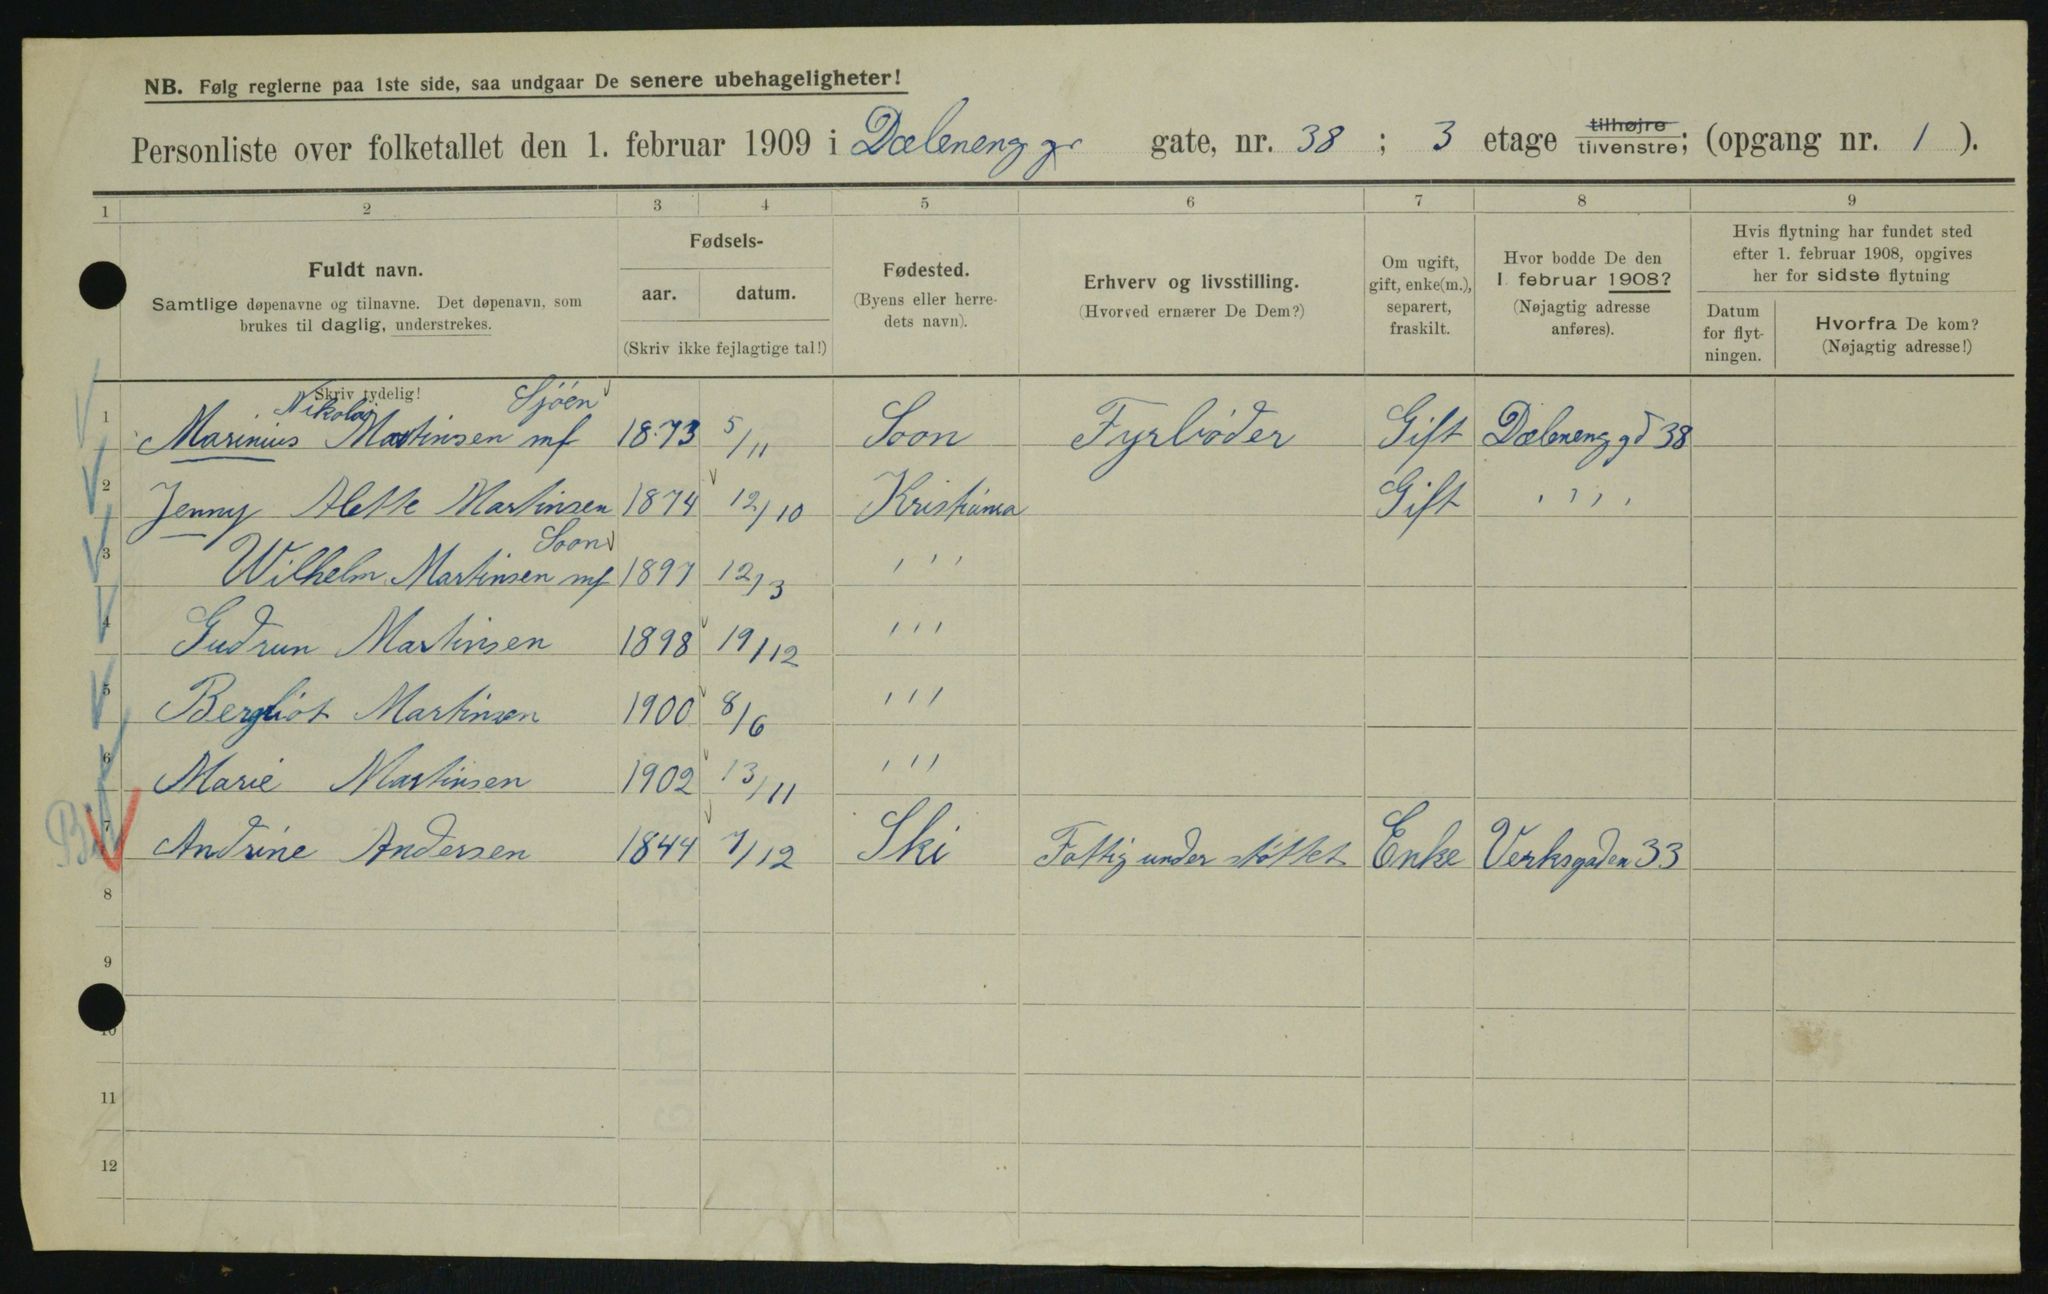 NB. Følg reglerne paa 1ste side, saa undgaar De senere ubehageligheter!
Personliste over folketallet den 1. februar 1909 i Dæleneng gr gate, nr. 38 ; 3 etage tilhøjre tilvenstre; (opgang nr. 1 ).
1 2 3 4 5 6 7 8 9
Fuldt navn.
Samtlige døpenavne og tilnavne. Det døpenavn, som
brukes til daglig, understrekes.
Fødsels-
aar. datum.
(Skriv ikke fejlagtige tal!)
Fødested.
(Byens eller herre-
dets navn).
Erhverv og livsstilling.
(Hvorved ernærer De Dem?)
Om ugift,
gift, enke(m.),
separert,
fraskilt.
Hvor bodde De den
1. februar 1908?
(Nøjagtig adresse
anføres).
Hvis flytning har fundet sted
efter 1. februar 1908, opgives
her for sidste flytning
Datum
for flyt-
ningen.
Hvorfra De kom?
(Nøjagtig adresse!)
Skriv tydelig!
Nikolai Sjöen
1 Marinius Martinsen mf 1873 5/11 Soon Fyrbøder Gift Dæleneng gd 38
2 Jenny Alette Martinsen 1874 12/10 Kristiania Gift " "
Soon
3 Wilhelm Martinsen mf 1897 12/3 ' ' '
4 Gudrun Martinsen 1898 19/12 ' ' '
5 Bergliot Martinsen 1900 8/6 ' ' '
6 Marie Martinsen 1902 13/11 ' ' '
7 Andrine Andersen 1844 7/12 Ski Fattig under støttet Enke Verksgaden 33
8
9
10
11
12